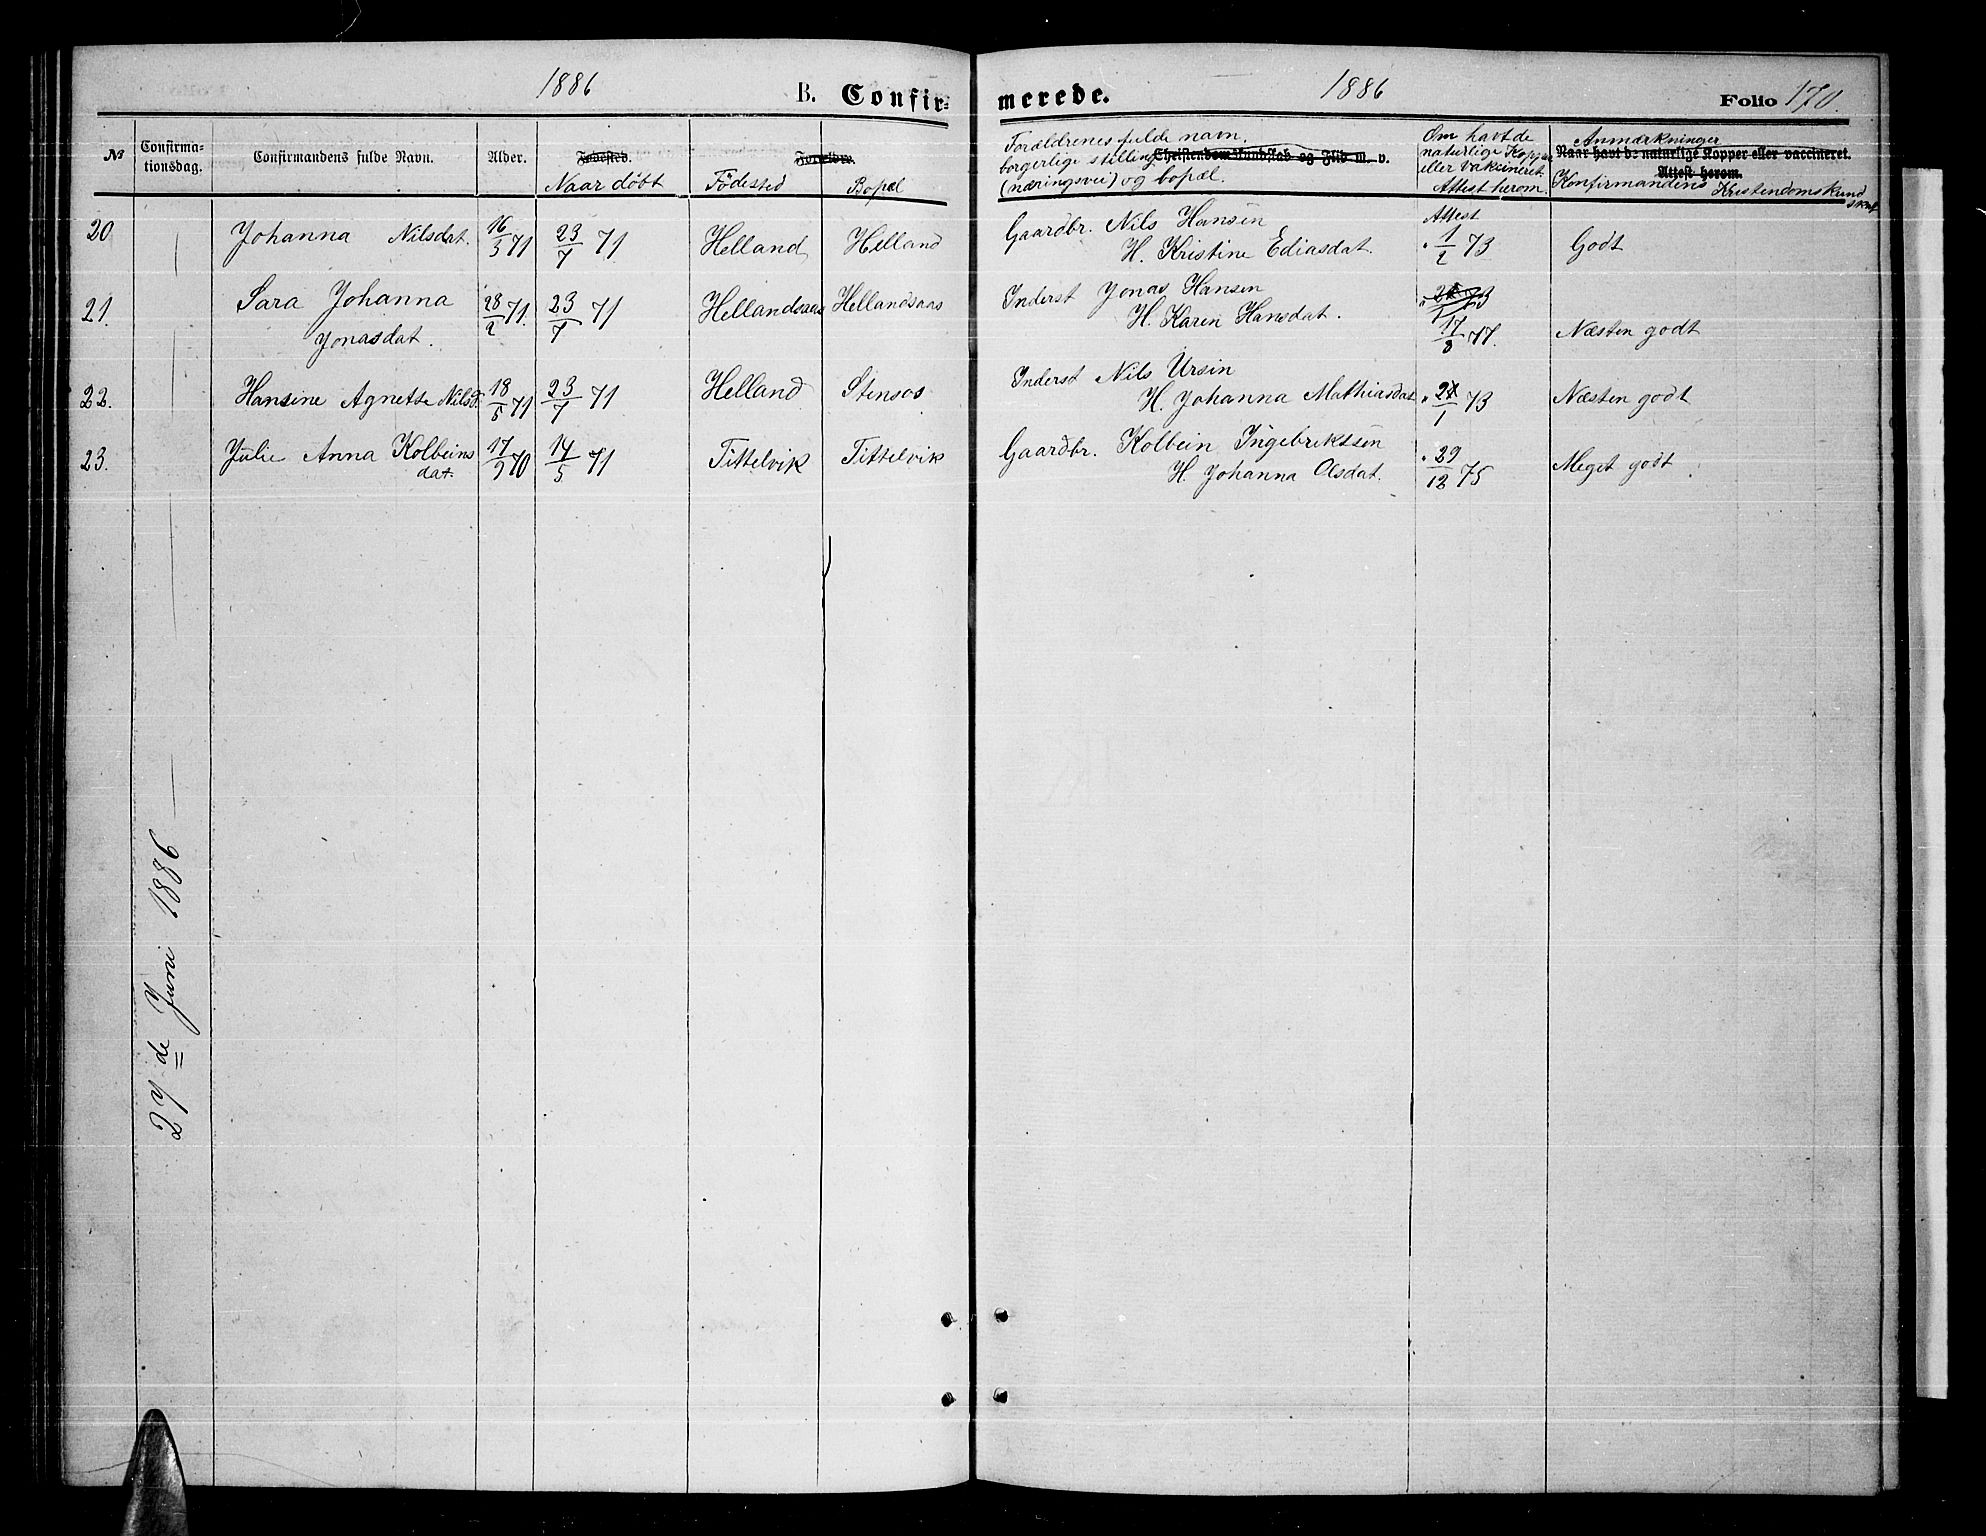 1886 B. Confir-
merede. 1886 Folio 170.
№ Confirma-
tionsdag. Confirmandens fulde Navn. Alder. Fødested. Forældre.
Naar döbt Födested Bopæl
Forældrenes fulde navn,
borgerlige stilling Christendomskundskab og Flid m. v.
(næringsvei) og bopæl.
Om havt de
naturlige Kopper
eller Vaksineret
Attest herom
Anmærkninger
Naar havt de naturlige Kopper eller vaccineret.
Attest herom.
Konfirmandens Kristendomskund
skab
20 Johanna Nilsdat. 16/3 71 23/7 71 Helland Helland Gaardbr. Nils Hansen Attest
H. Kristine Ediasdat. " 1/2 73 Godt
21. Sara Johanna 28/2 71. 23/7 71 Hellandsaas Hellandsaas Inderst Jonas Hansen
Jonasdat. H. Karen Hansdat. 17/8 77. Næsten godt
22. Hansine Agnette Nilsd. 18/5 71 23/7 71 Helland Stensos Inderst Nils Ursin
H. Johanna Mathiasdat " 21/1 73 Næsten godt
23. Julie Anna Kolbeins 17/9 70 14/5 71 Tittelvik Tittelvik Gaardbr. Kolbein Ingebriktsen
dat. H. Johanna Olsdat. " 29/12 75 Meget godt
27de Juni 1886